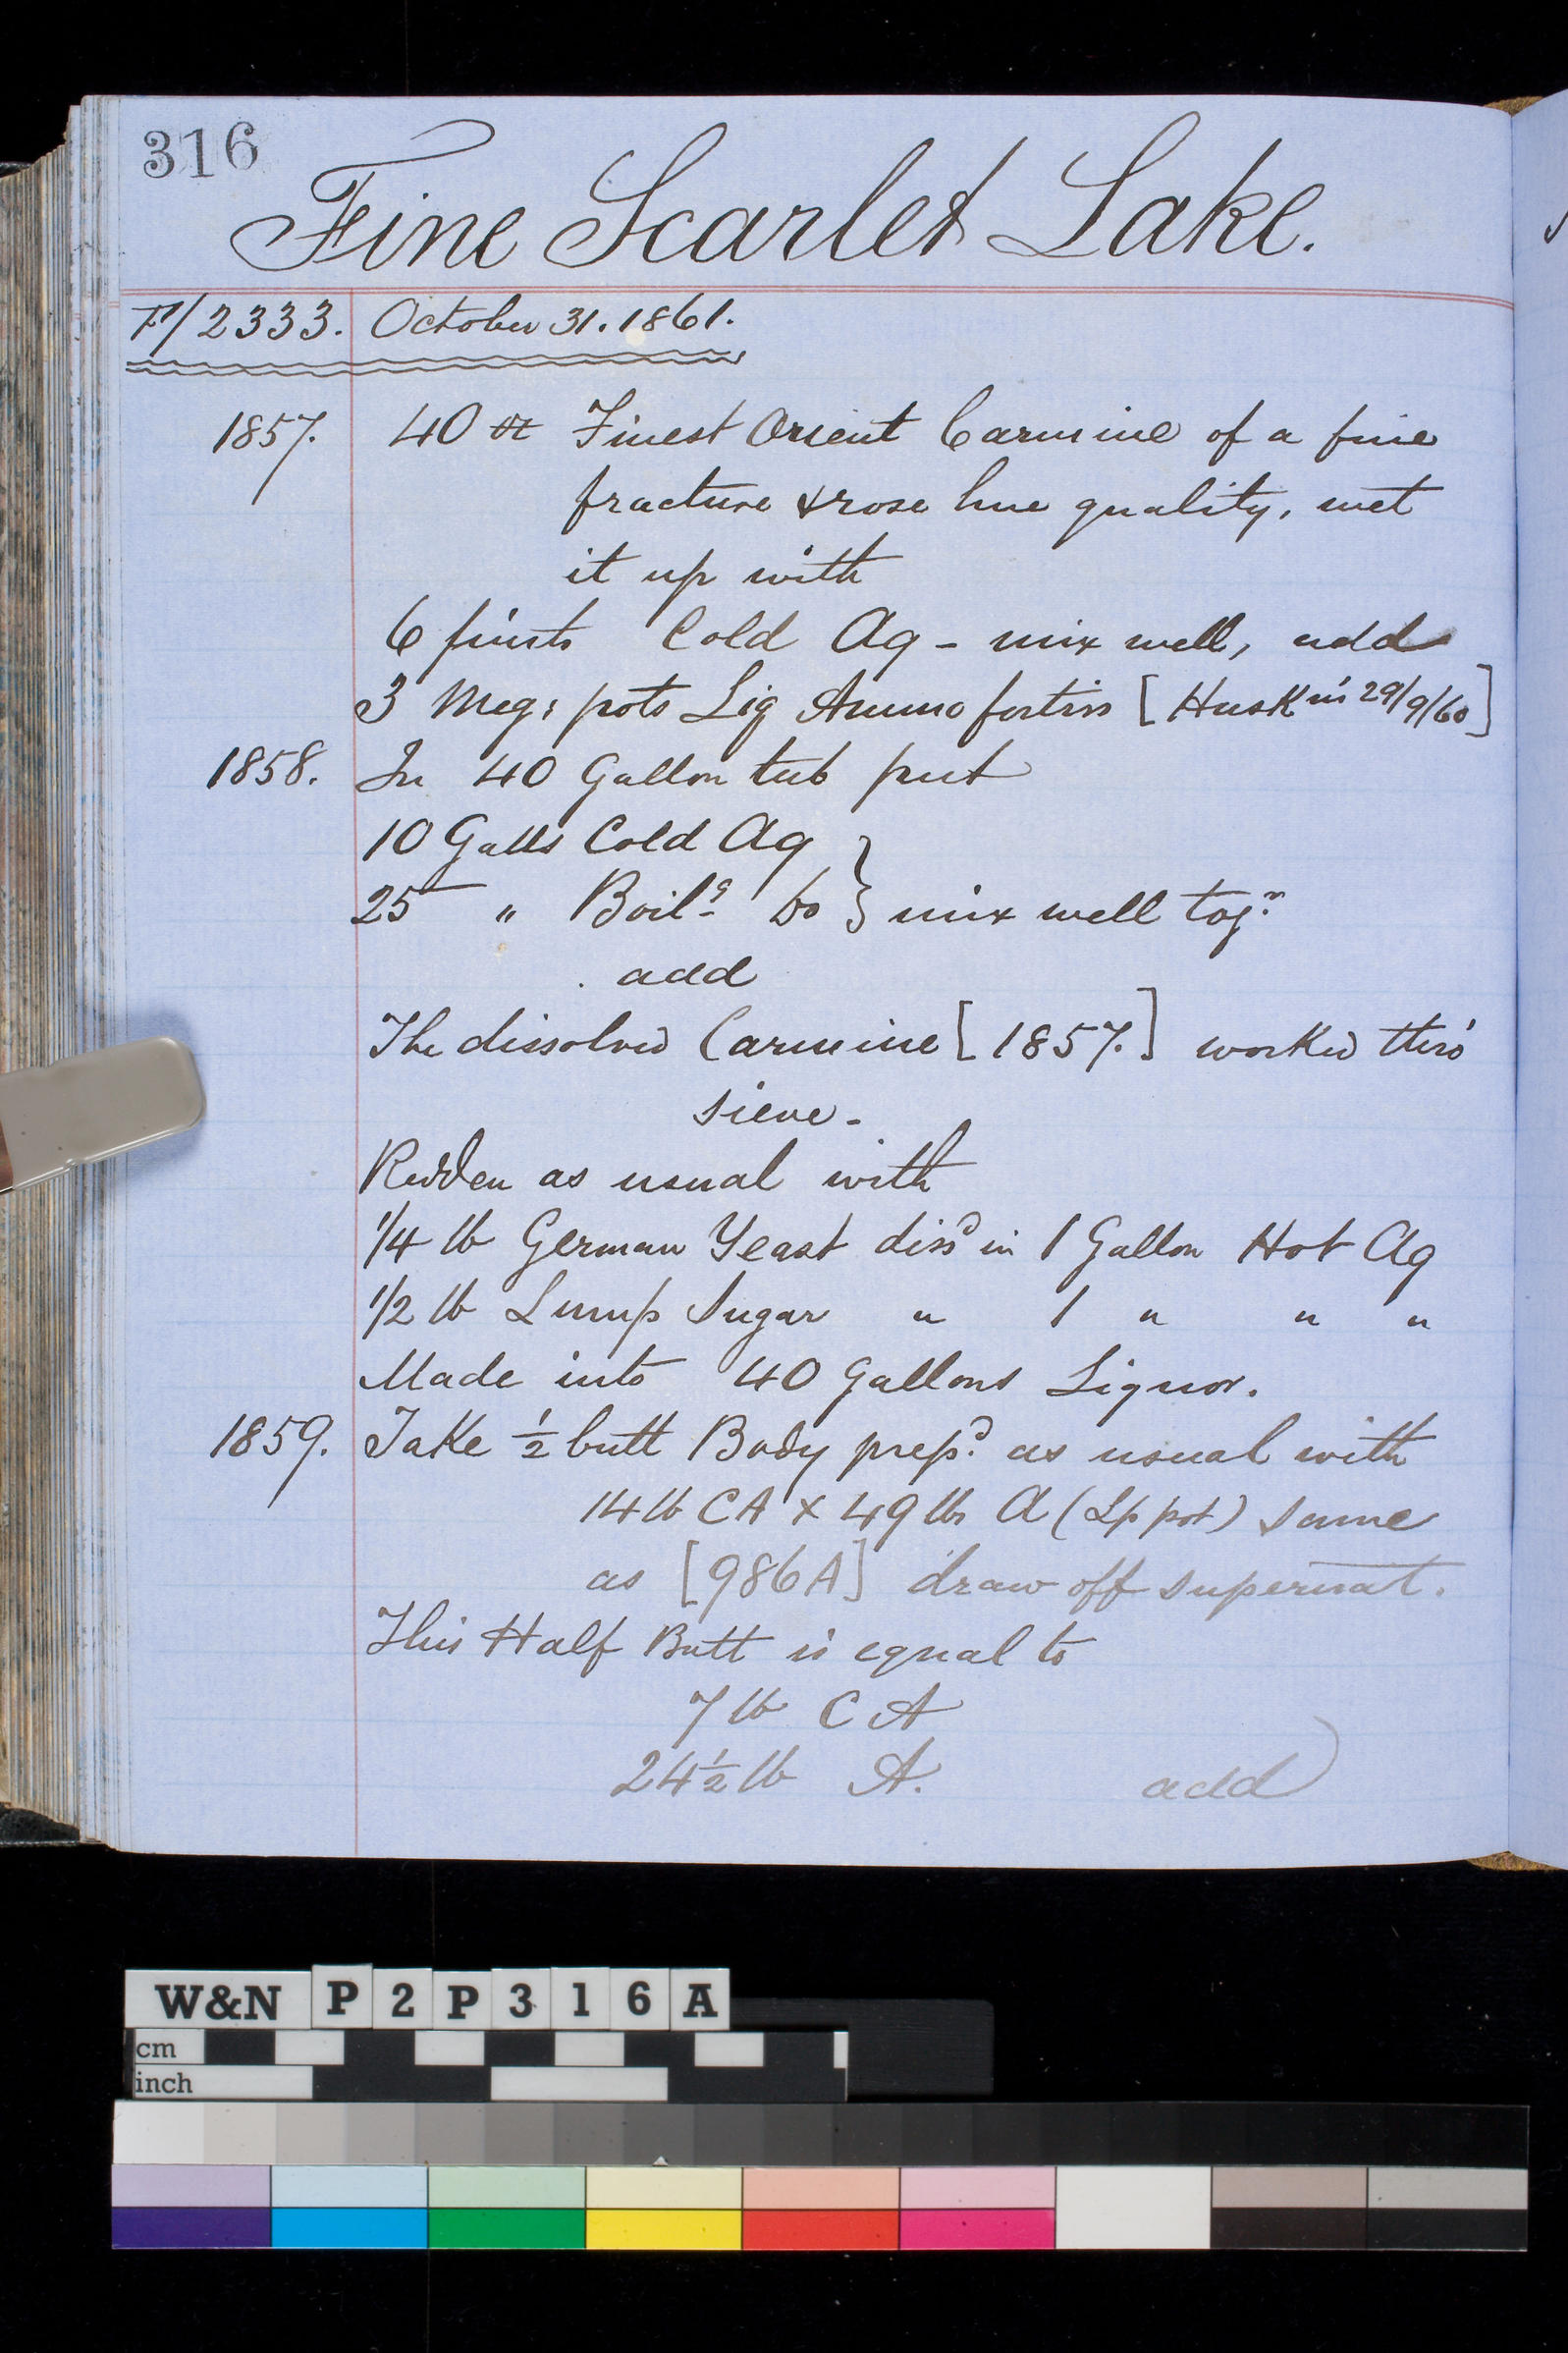 316
Fine Scarlet Lake.
P/2333. October 31. 1861.
1857. 40 oz Finest Orient Carmine of a fine
fracture & rose hue quality, wet
it up with
6 pints Cold Aq - mix well, add
3 Meas pots Liq Ammo fortiss [Husk in 29/9/60]
1858. In 40 Gallon tub put
10 Galls Cold Aq }
25 " Boilg Do } mix well togr
add
The dissolved Carmine [1857.] worked thro'
sieve -
Redden as usual with
1/4 lb German Yeast dissd in 1 Gallon Hot Aq
1/2 lb Lump Sugar " 1 " " "
Made into 40 Gallons Liquor.
1859. Take ½ butt Body prepd as usual with
14 lb CA x 49 lbs A (Lp pot) same
as [986A] draw off supernat.
This Half Butt is equal to
7 lb C A
24½ lb A. add
W&N P2P316A
cm
inch